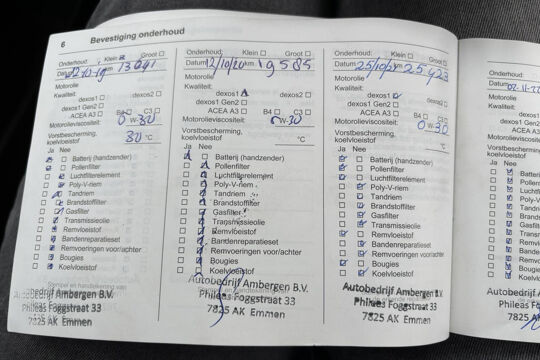 6 Bevestiging onderhoud
Onderhoud: Klein Groot
Datum 02-10-19 km 13041
Motorolie
Kwaliteit:
dexos1 dexos2
dexos1 Gen2
ACEA A3 B4 C3
Motorolieviscositeit: 0 W-30
Vorstbescherming, koelvloeistof 30 °C
Ja Nee
Batterij (handzender)
Pollenfilter
Luchtfilterelement
Poly-V-riem
Tandriem
Brandstoffilter
Gasfilter
Transmissieolie
Remvloeistof
Bandenreparatieset
Remvoeringen voor/achter
Bougies
Koelvloeistof
Autobedrijf Ambergen B.V.
Phileas Foggstraat 33
7825 AK Emmen
Onderhoud: Klein Groot
Datum 12/10/20 km 19585
Motorolie
Kwaliteit:
dexos1 dexos2
dexos1 Gen2
ACEA A3 B4 C3
Motorolieviscositeit: 0W-30
Vorstbescherming,
koelvloeistof °C
Ja Nee
Batterij (handzender)
Pollenfilter
Luchtfilterelement
Poly-V-riem
Tandriem
Brandstoffilter
Gasfilter
Transmissieolie
Remvloeistof
Bandenreparatieset
Remvoeringen voor/achter
Bougies
Koelvloeistof
Autobedrijf Ambergen B.V.
Phileas Foggstraat 33
7825 AK Emmen
Onderhoud: Klein Groot
Datum 25/10/21 km 25423
Motorolie
Kwaliteit:
dexos1 dexos2
dexos1 Gen2
ACEA A3 B4 C3
Motorolieviscositeit: 0 W-30
Vorstbescherming,
koelvloeistof °C
Ja Nee
Batterij (handzender)
Pollenfilter
Luchtfilterelement
Poly-V-riem
Tandriem
Brandstoffilter
Gasfilter
Transmissieolie
Remvloeistof
Bandenreparatieset
Remvoeringen voor/achter
Bougies
Koelvloeistof
Autobedrijf Ambergen B.V.
Phileas Foggstraat 33
7825 AK Emmen
Onderhoud:
Datum 02-11-22
Motorolie
Kwaliteit:
Motorolieviscositeit
Vorstbescherming
koelvloeistof
Ja Nee